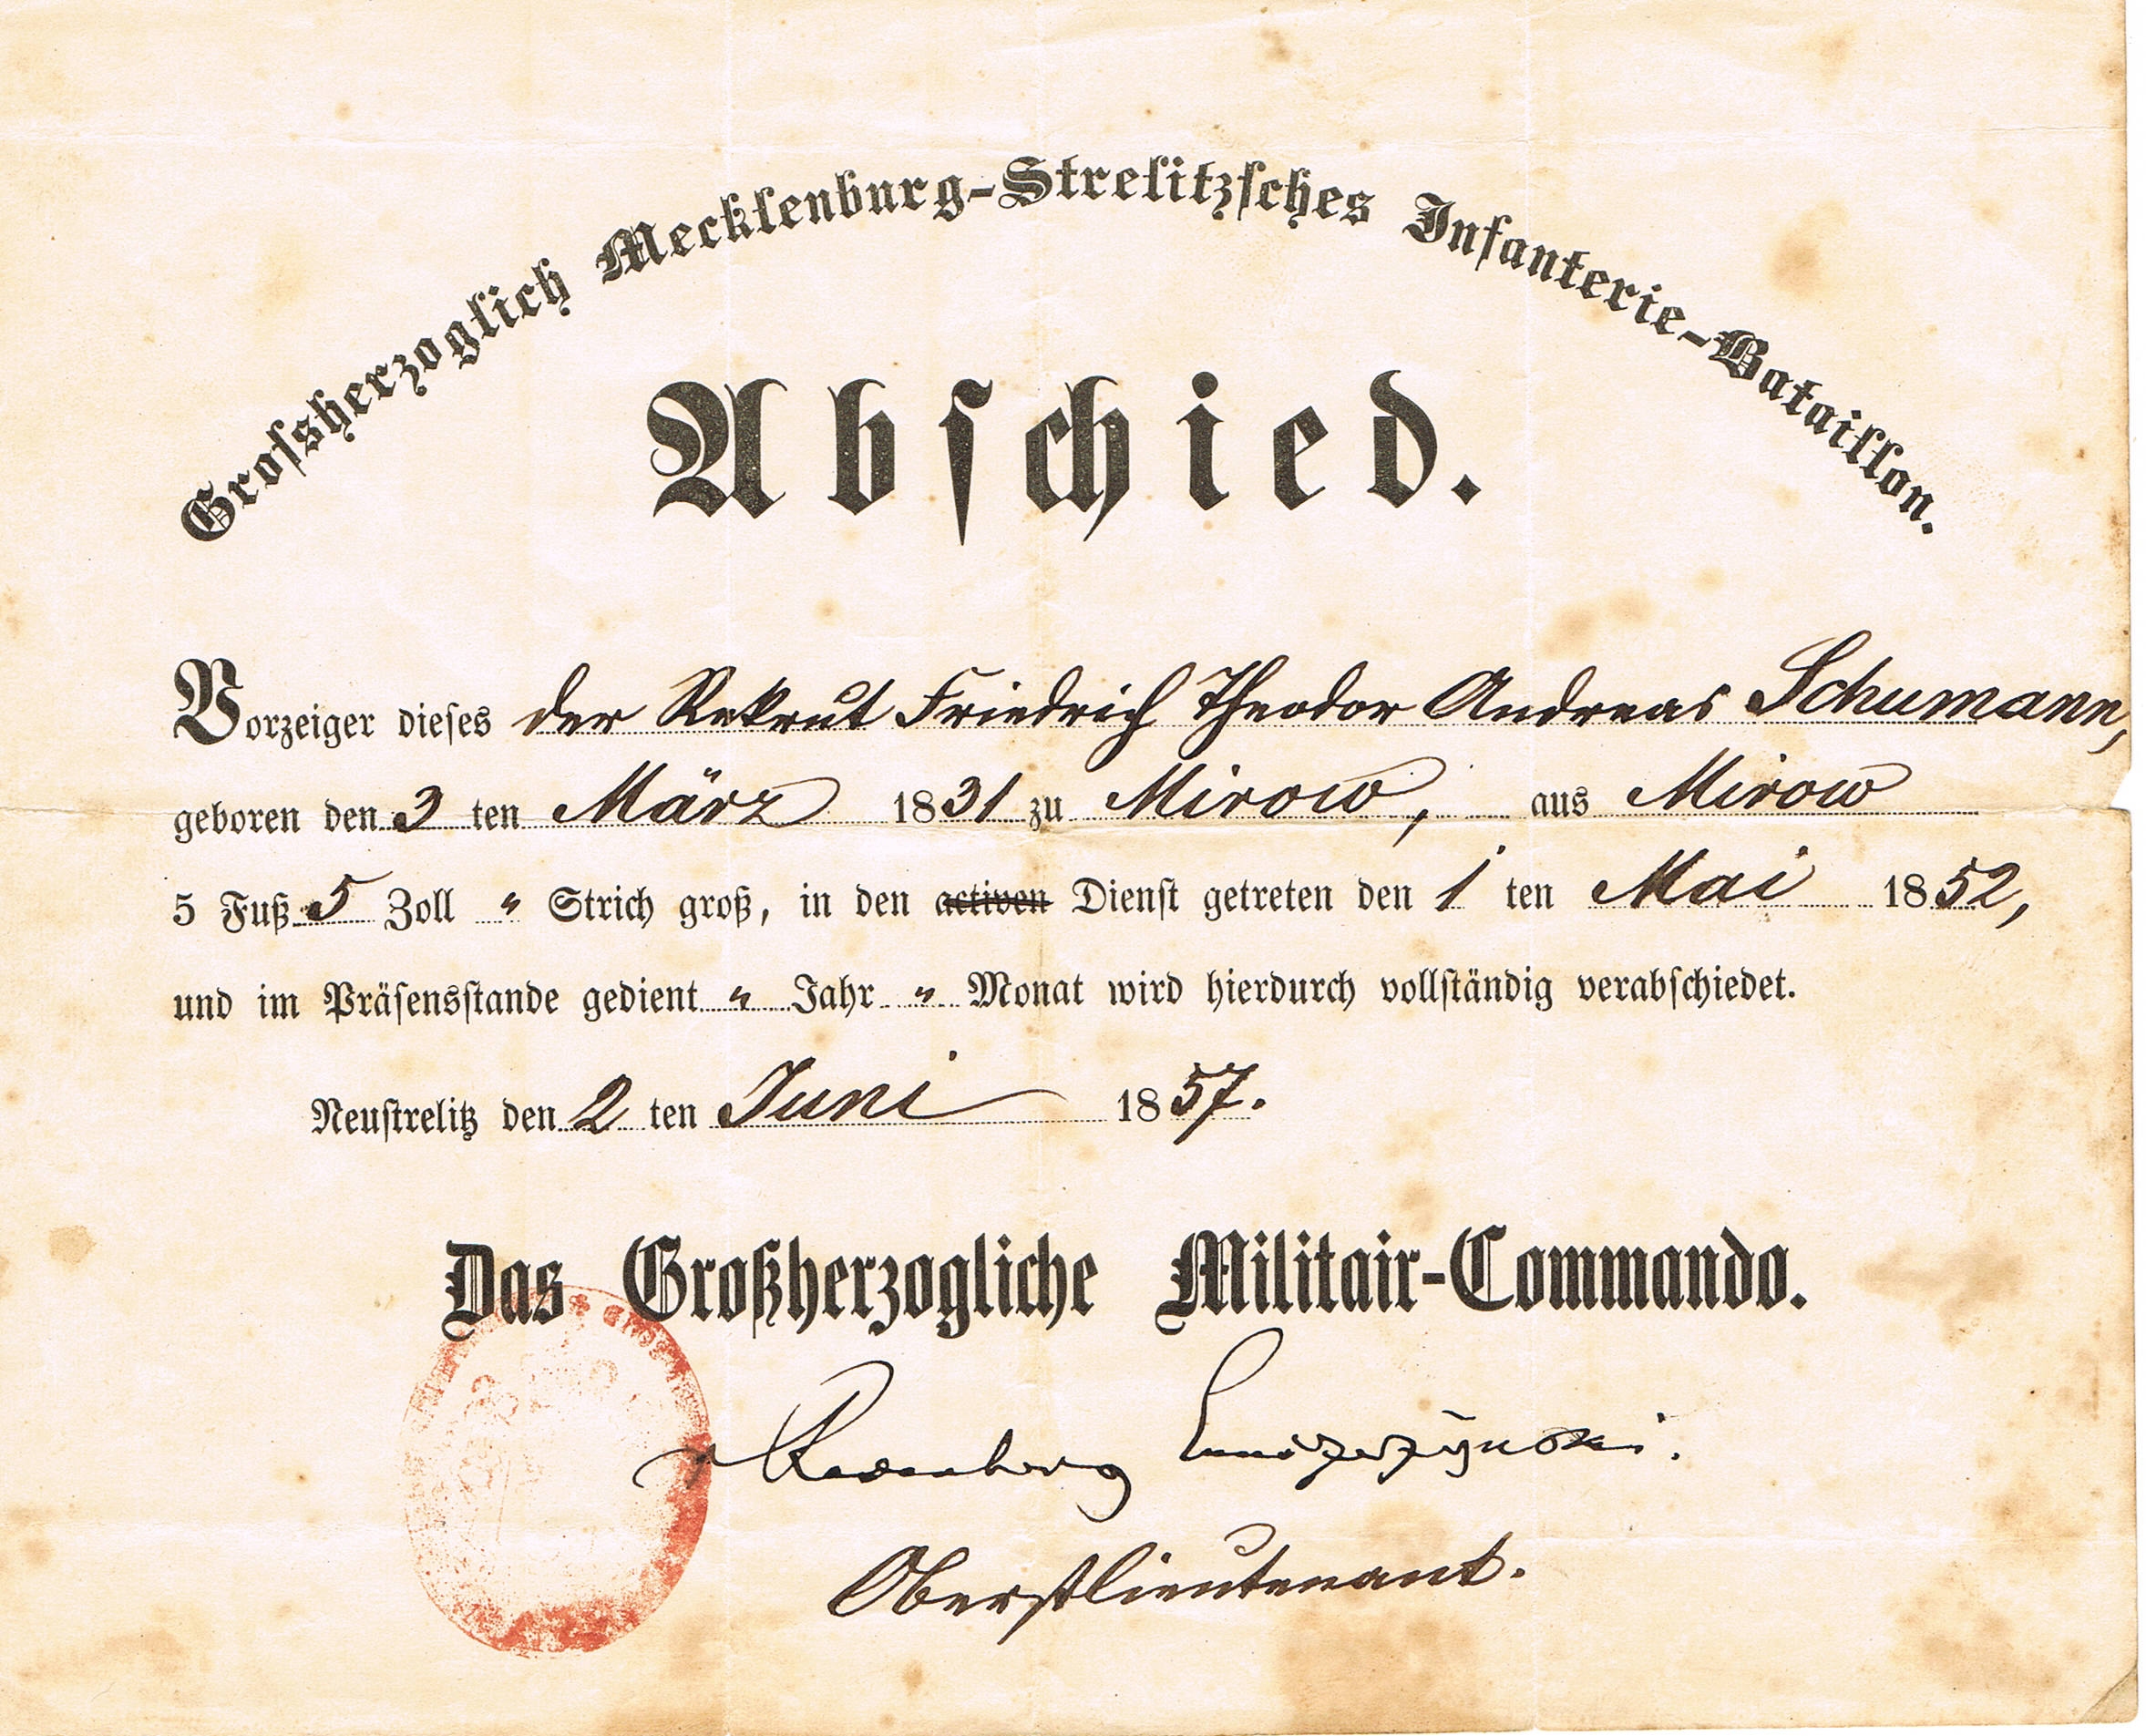 Grossherzoglich Mecklenburg-Strelitzsches Infanterie-Bataillon.
Abschied.
Vorzeiger dieses der Rekrut Friedrich Theodor Andreas Schumann,
geboren den 3 ten März 1831 zu Mirow, aus Mirow
5 Fuß 5 Zoll " Strich groß, in den activen Dienst getreten den 1 ten Mai 1852,
und im Präsensstande gedient " Jahr " Monat wird hierdurch vollständig verabschiedet.
Neustrelitz den 2 ten Juni 1857.
Das Großherzogliche Militair-Commando.
Oberstlieutenant.